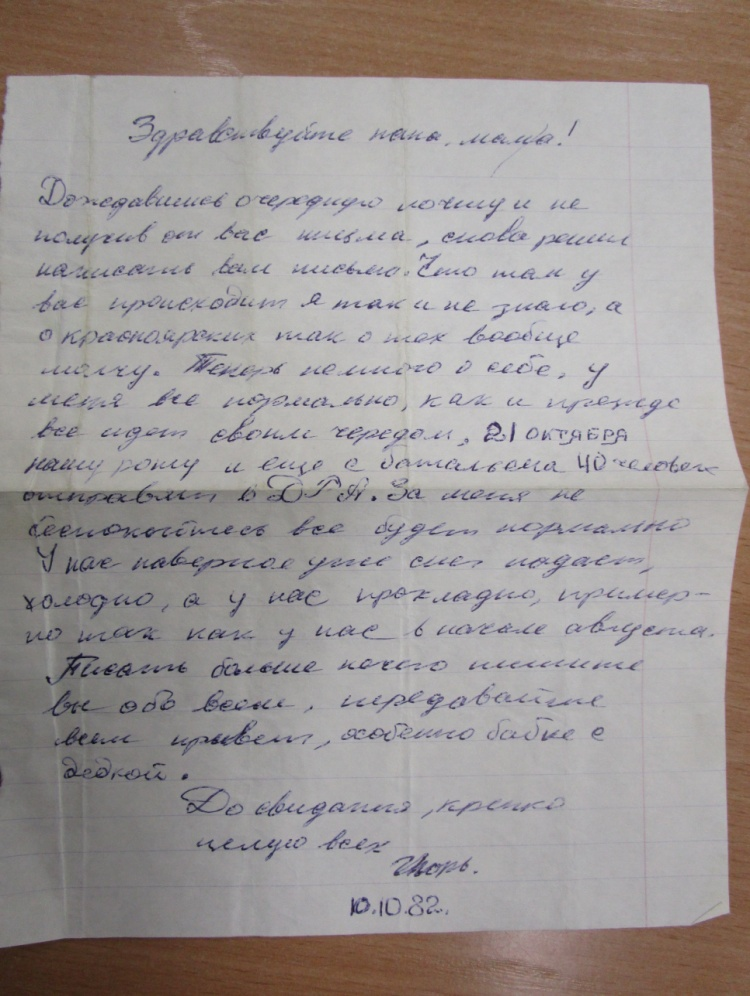 Здравствуйте папа, мама!
Дождавшись очередную почту и не
получив от вас письма, снова решил
написать вам письмо. Что там у
вас происходит я так и не знаю, а
о красноярских так о тех вообще
молчу. Теперь немного о себе, у
меня все нормально, как и прежде
все идет своим чередом, 21 ОКТЯБРЯ
нашу роту и еще с батальона 40 человек
отправляют в ДРА. За меня не
беспокойтесь все будет нормально
У нас наверное уже снег падает,
холодно, а у нас прохладно, пример-
но так как у нас в начале августа.
Писать больше нечего пишите
вы обо всем, передавайте
всем привет, особенно бабке с
дедкой.
До свидания, крепко
целую всех
Игорь.
10.10.82.